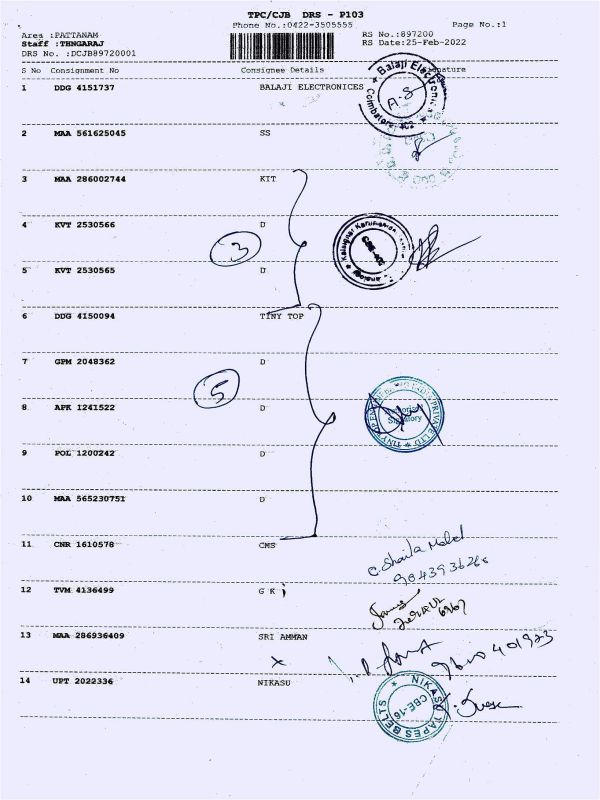 TPC/CJB DRS - P103
Phone No.:0422-3505555
Page No.:1
Area :PATTANAM
RS No.:897200
Staff :THNGARAJ
RS Date:25-Feb-2022
DRS No. :DCJB89720001
S No Consignment No Consignee Details Signature
1 DDG 4151737 BALAJI ELECTRONICES
Balaji Electronics
Coimbatore 402
A.S
2 MAA 561625045 SS
3 MAA 286002744 KIT
4 KVT 2530566 D
3
5 KVT 2530565 D
6 DDG 4150094 TINY TOP
7 GPM 2048362 D
5
8 APK 1241522 D
Signatory
PRIVATE LTD
9 POL 1200242 D
10 MAA 565230751 D
11 CNR 1610578 CMS
C. Shaila
12 TVM 4136499 G K
13 MAA 286936409 SRI AMMAN
x
14 UPT 2022336 NIKASU
NIKASU TAPES BELTS
CBE-16